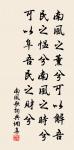 南風之薰兮可以解吾
民之慍兮南風之時兮
可以阜吾民之財兮
南風歌